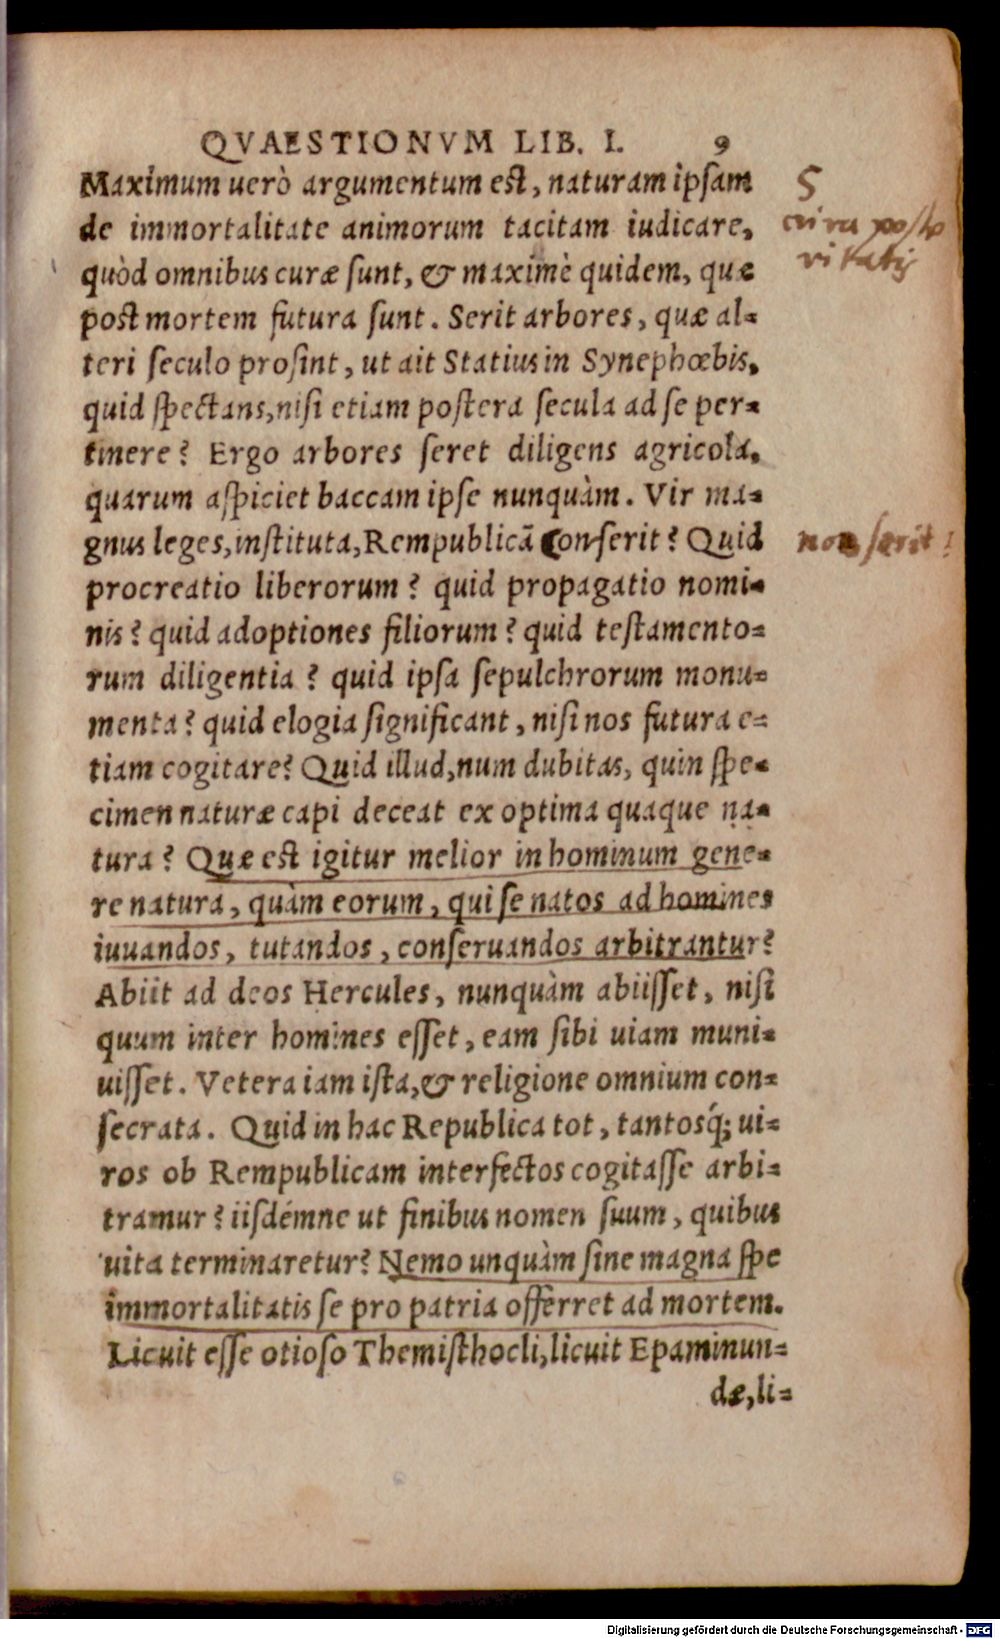 QVAESTIONVM LIB. I. 9
Maximum uerò argumentum est, naturam ipsam
de immortalitate animorum tacitam iudicare,
quòd omnibus curæ sunt, & maximè quidem, quæ
post mortem futura sunt. Serit arbores, quæ al-
teri seculo prosint, ut ait Statius in Synephœbis,
quid spectans, nisi etiam postera secula ad se per-
tinere? Ergo arbores seret diligens agricola,
quarum aspiciet baccam ipse nunquàm. Vir ma-
gnus leges, instituta, Rempublicã Conserit? Quid
procreatio liberorum? quid propagatio nomi-
nis? quid adoptiones filiorum? quid testamento-
rum diligentia? quid ipsa sepulchrorum monu-
menta? quid elogia significant, nisi nos futura e-
tiam cogitare? Quid illud, num dubitas, quin spe-
cimen naturæ capi deceat ex optima quaque na-
tura? Quæ est igitur melior in hominum gene-
re natura, quàm eorum, qui se natos ad homines
iuuandos, tutandos, conseruandos arbitrantur?
Abiit ad deos Hercules, nunquàm abiisset, nisi
quum inter homines esset, eam sibi uiam muni-
uisset. Vetera iam ista, & religione omnium con-
secrata. Quid in hac Republica tot, tantosq́; ui-
ros ob Rempublicam interfectos cogitasse arbi-
tramur? iisdémne ut finibus nomen suum, quibus
uita terminaretur? Nemo unquàm sine magna spe
immortalitatis se pro patria offerret ad mortem.
Licuit esse otioso Themisthocli, licuit Epaminun-
dæ, li-
5
cura poste
ritatis
non serit?
Digitalisierung gefördert durch die Deutsche Forschungsgemeinschaft - DFG